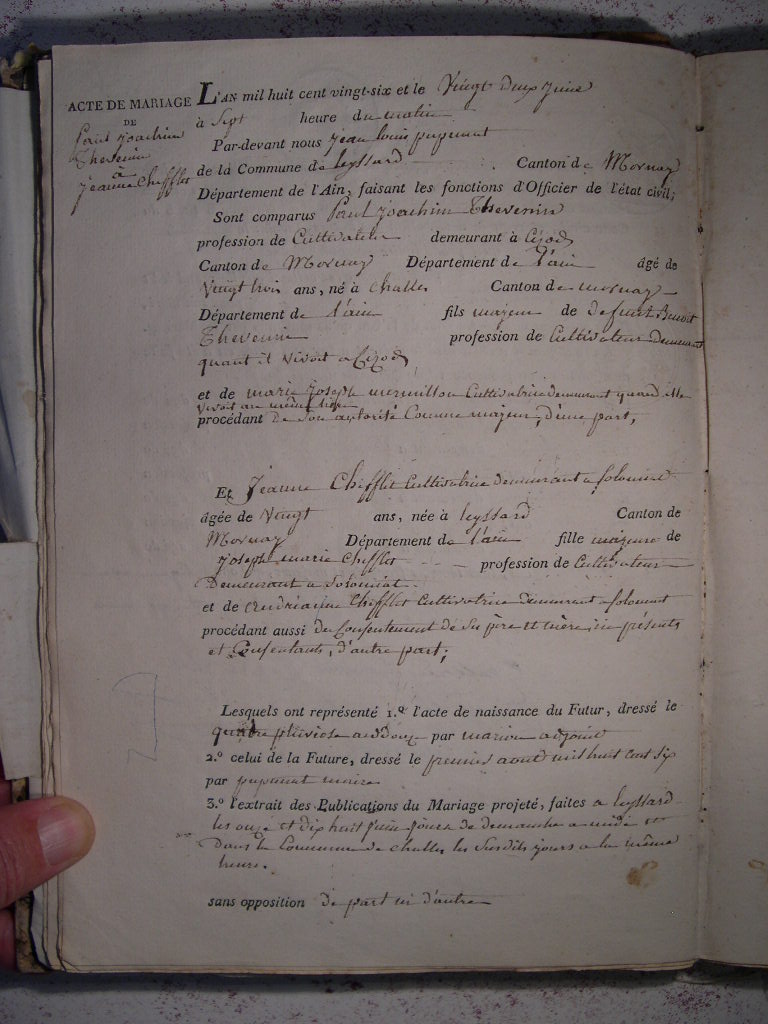 ACTE DE MARIAGE
DE
Paul joachim
Thevenin
à
jeanne Chifflet
L'AN mil huit cent vingt-six et le Vingt deux juin
à Sept heure du matin
Par-devant nous jean louis pupunat
de la Commune de leyssard Canton de Mornay
Département de l'Ain, faisant les fonctions d'Officier de l'état civil;
Sont comparus Paul joachim Thevenin
profession de Cultivateur demeurant à Cizod
Canton de Mornay Département de l'ain âgé de
Vingt trois ans, né à challes Canton de mornay
Département de l'ain fils majeur de defunt Benoit
Thevenin profession de Cultivateur demeurant
quant il vivoit a Cizod
et de marie joseph mermillon Cultivatrice demeurant quand elle
vivoit au même lieu
procédant de son autorité Comme majeur, d'une part,
Et Jeanne Chifflet Cultivatrice demeurant a solomiat
âgée de Vingt ans, née à leyssard Canton de
Mornay Département de l'ain fille majeure de
joseph marie Chifflet profession de Cultivateur
Demeurant a Solomiat
et de andrianne Chifflet Cultivatrice demeurant a solomiat
procédant aussi du Consentement de Ses père et mère ici présents
et Consentants, d'autre part;
Lesquels ont représenté 1.º l'acte de naissance du Futur, dressé le
pluviose an par adjoint
2.º celui de la Future, dressé le premier aout mil huit cent six
par pupunat maire
3.º l'extrait des Publications du Mariage projeté, faites a leyssard
les onze et dix huit juin jours de demanche a midi et
Dans la Commune de challes les Susdits jours a la même
heure.
sans opposition de part ni d'autre